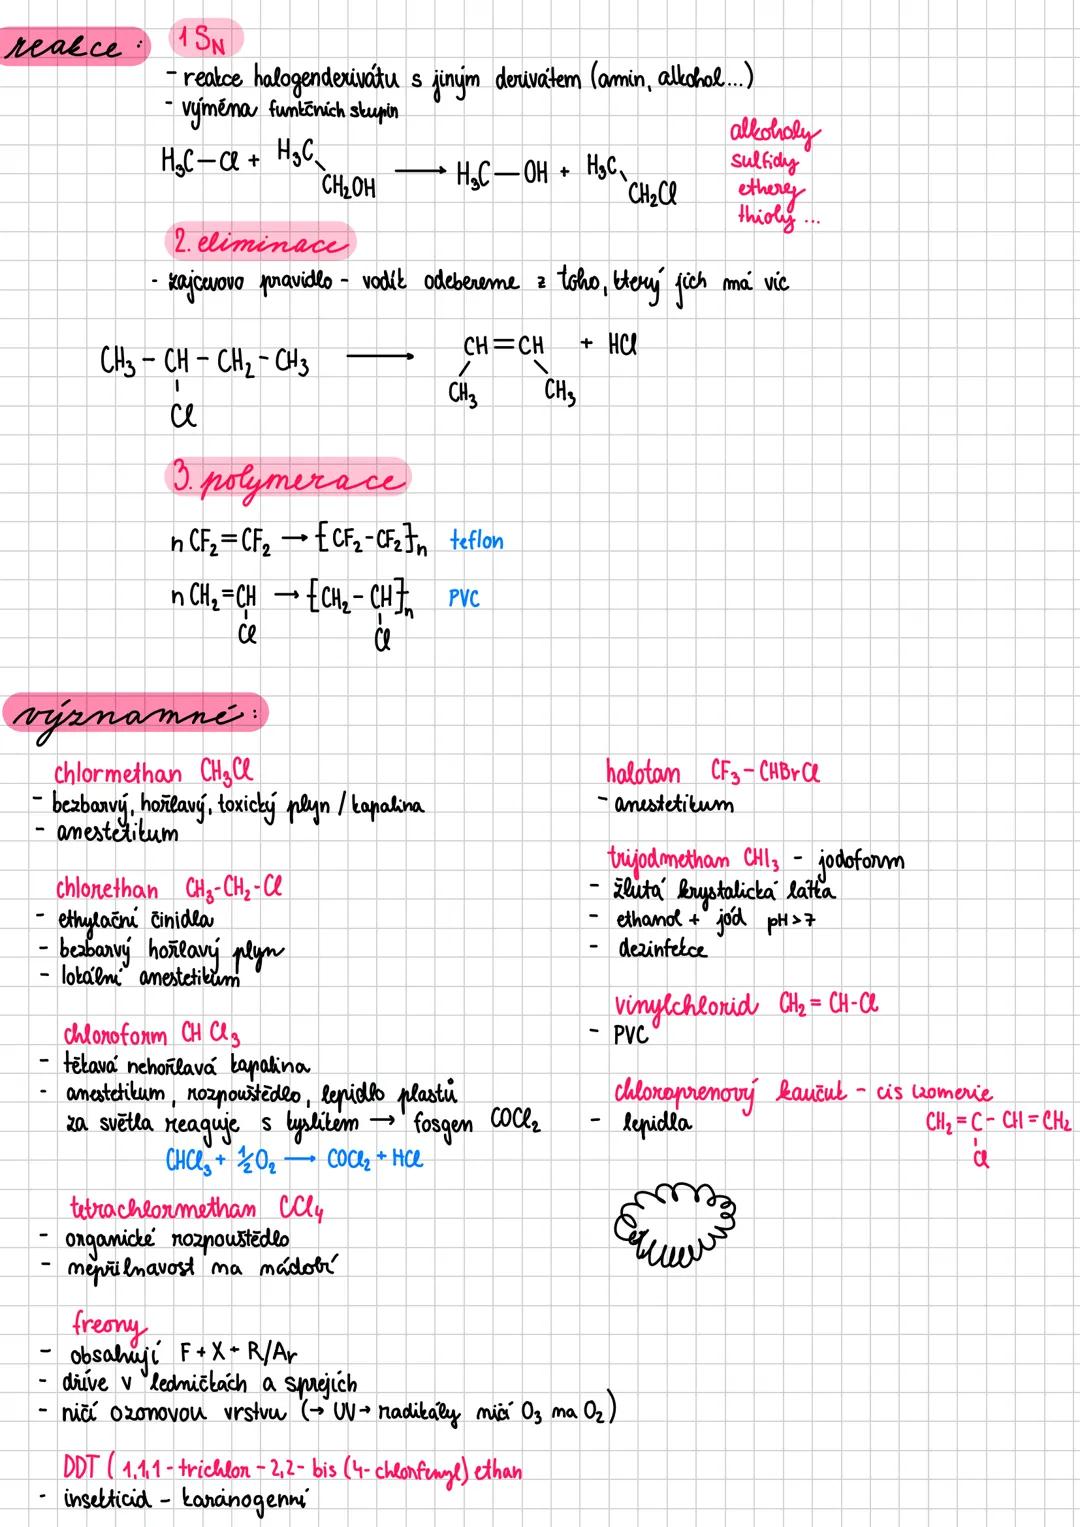 reakce:
1 SN
- reakce halogenderivátu s jiným derivátem (amin, alkohol...)
- výměna funkčních skupin
H₃C–Cl + H₃C CH₂OH → H₃C–OH + H₃C CH₂Cl
alkoholy
sulfidy
ethery
thioly ...
2. eliminace
- zajcevovo pravidlo - vodík odebereme z toho, který jich má víc
CH₃ - CH - CH₂ - CH₃ → CH=CH + HCl
Cl
CH₃ CH₃
3. polymerace
n CF₂=CF₂ → [CF₂-CF₂]n teflon
n CH₂=CH → [CH₂-CH]n PVC
Cl Cl
významné:
chlormethan CH₃Cl
- bezbarvý, hořlavý, toxický plyn / kapalina
- anestetikum
chlorethan CH₃-CH₂-Cl
- ethylační činidla
- bezbarvý hořlavý plyn
- lokální anestetikum
chloroform CHCl₃
- těkavá nehořlavá kapalina
- anestetikum, rozpouštědlo, lepidlo plastů
za světla reaguje s kyslíkem → fosgen COCl₂
CHCl₃ + ½O₂ → COCl₂ + HCl
tetrachlormethan CCl₄
- organické rozpouštědlo
- nepřilnavost na nádobí
freony
- obsahují F + X + R/Ar
- dříve v ledničkách a sprejích
- ničí ozonovou vrstvu (→ UV → radikály ničí O₃ na O₂)
DDT (1,1,1-trichlor-2,2-bis(4-chlorfenyl)ethan
- insekticid - karcinogenní
halotan CF₃-CHBrCl
- anestetikum
trijodmethan CHI₃ - jodoform
- žlutá krystalická látka
- ethanol + jód pH>7
- dezinfekce
vinylchlorid CH₂=CH-Cl
- PVC
chloroprenový kaučuk - cis izomerie
- lepidla
CH₂=C-CH=CH₂
Cl